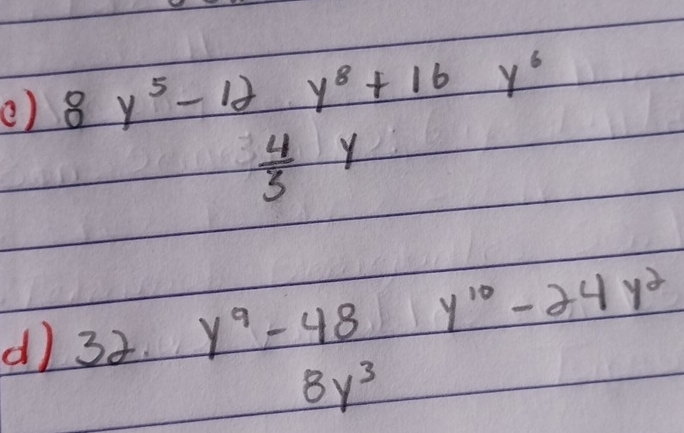 c) 8 y⁵ - 12 y⁸ + 16 y⁶
4/3 y
d) 32 y⁹ - 48 y¹⁰ - 24 y²
8y³